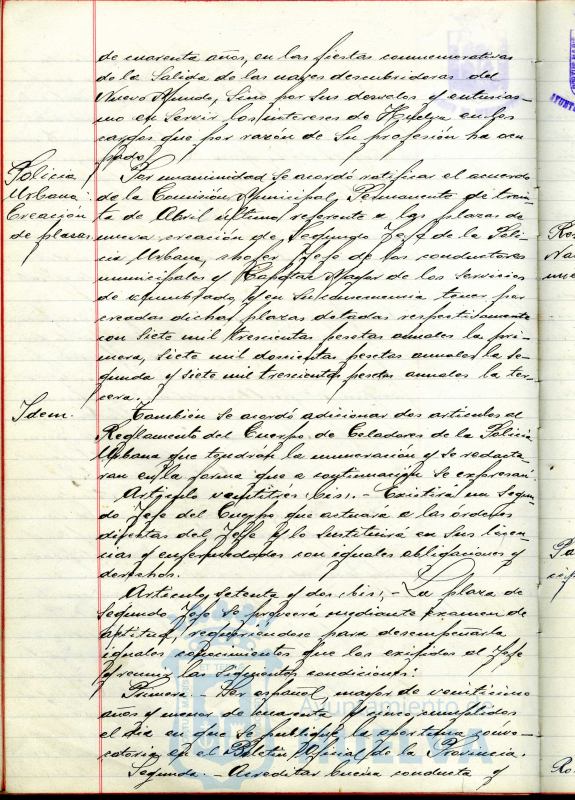 de cuarenta años, en las fiestas conmemorativas
de la Salida de las naves descubridoras del
Nuevo Mundo, Sino por sus desvelos y entusias-
mo en servir los intereses de Huelva en los
cargos que por razón de su profesión ha ocu
pado.
Policía
Urbana.
Creación
de plazas
Por unanimidad se acordó ratificar el acuerdo
de la Comisión Municipal Permanente de trein-
ta de Abril último, referente a las plazas de
nueva creación de Segundo Jefe de la Poli-
cía Urbana, chofer Jefe de los conductores
municipales y Capataz Mayor de los Servicios
de alumbrado, y en su consecuencia tener por
creadas dichas plazas dotadas respectivamente
con siete mil trescientas pesetas anuales la pri-
mera, siete mil doscientas pesetas anuales la se-
gunda y siete mil trescientas pesetas anuales la ter-
cera.
Idem.
También se acordó adicionar dos artículos al
Reglamento del Cuerpo de Celadores de la Policía
Urbana que tendrán la numeración y se redacta-
ran en la forma que a continuación se expresan:
Artículo veintitrés bis. - Existirá un Segun-
do Jefe del Cuerpo que actuará a las órdenes
directas del Jefe y lo sustituirá en sus licen-
cias y enfermedades con iguales obligaciones y
derechos.
Artículo setenta y dos bis. - La plaza de
Segundo Jefe se proveerá mediante examen de
aptitud, requiriendose para desempeñarla
iguales conocimientos que los exigidos al Jefe
y reunir las siguientes condiciones:
Primera. - Ser español, mayor de veinticinco
años y menor de cuarenta y cinco cumplidos
el día en que se publique la oportuna convo-
catoria en el Boletín Oficial de la Provincia.
Segunda. - Acreditar buena conducta y
Ayuntamiento de
HUELVA